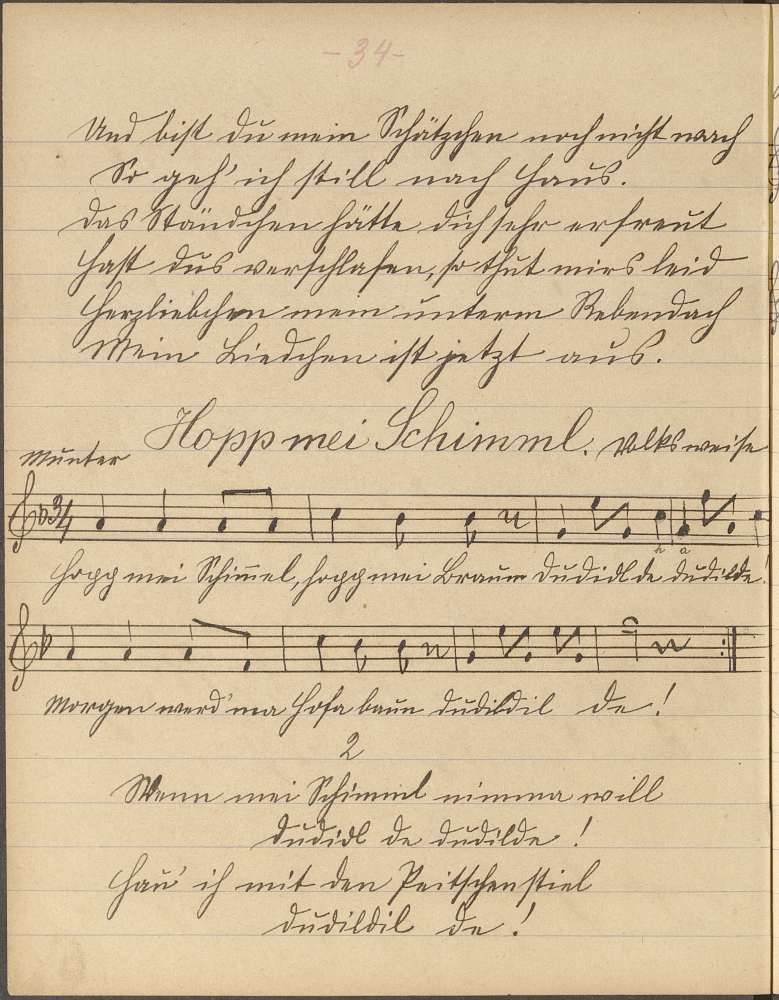 -34-
Und bist du mein Schätzchen noch nicht wach
So geh' ich still nach Haus.
Das Ständchen hätte dich sehr erfreut
Hast dus verschlafen, so thut mirs leid
Herzliebchen mein unterm Rebendach
Mein Liedchen ist jetzt aus.
Hopp mei Schimml. Volksweise
Munter
3/4
h a
Hopp mei Schimmel, hopp mei Braum dudidl de dudilde!
Morgen werd' ma Hofa baun dudildil de!
2
Wenn mei Schimml nimma will
dudidl de dudilde!
Hau' ih mit den Peitschenstiel
dudildil de!